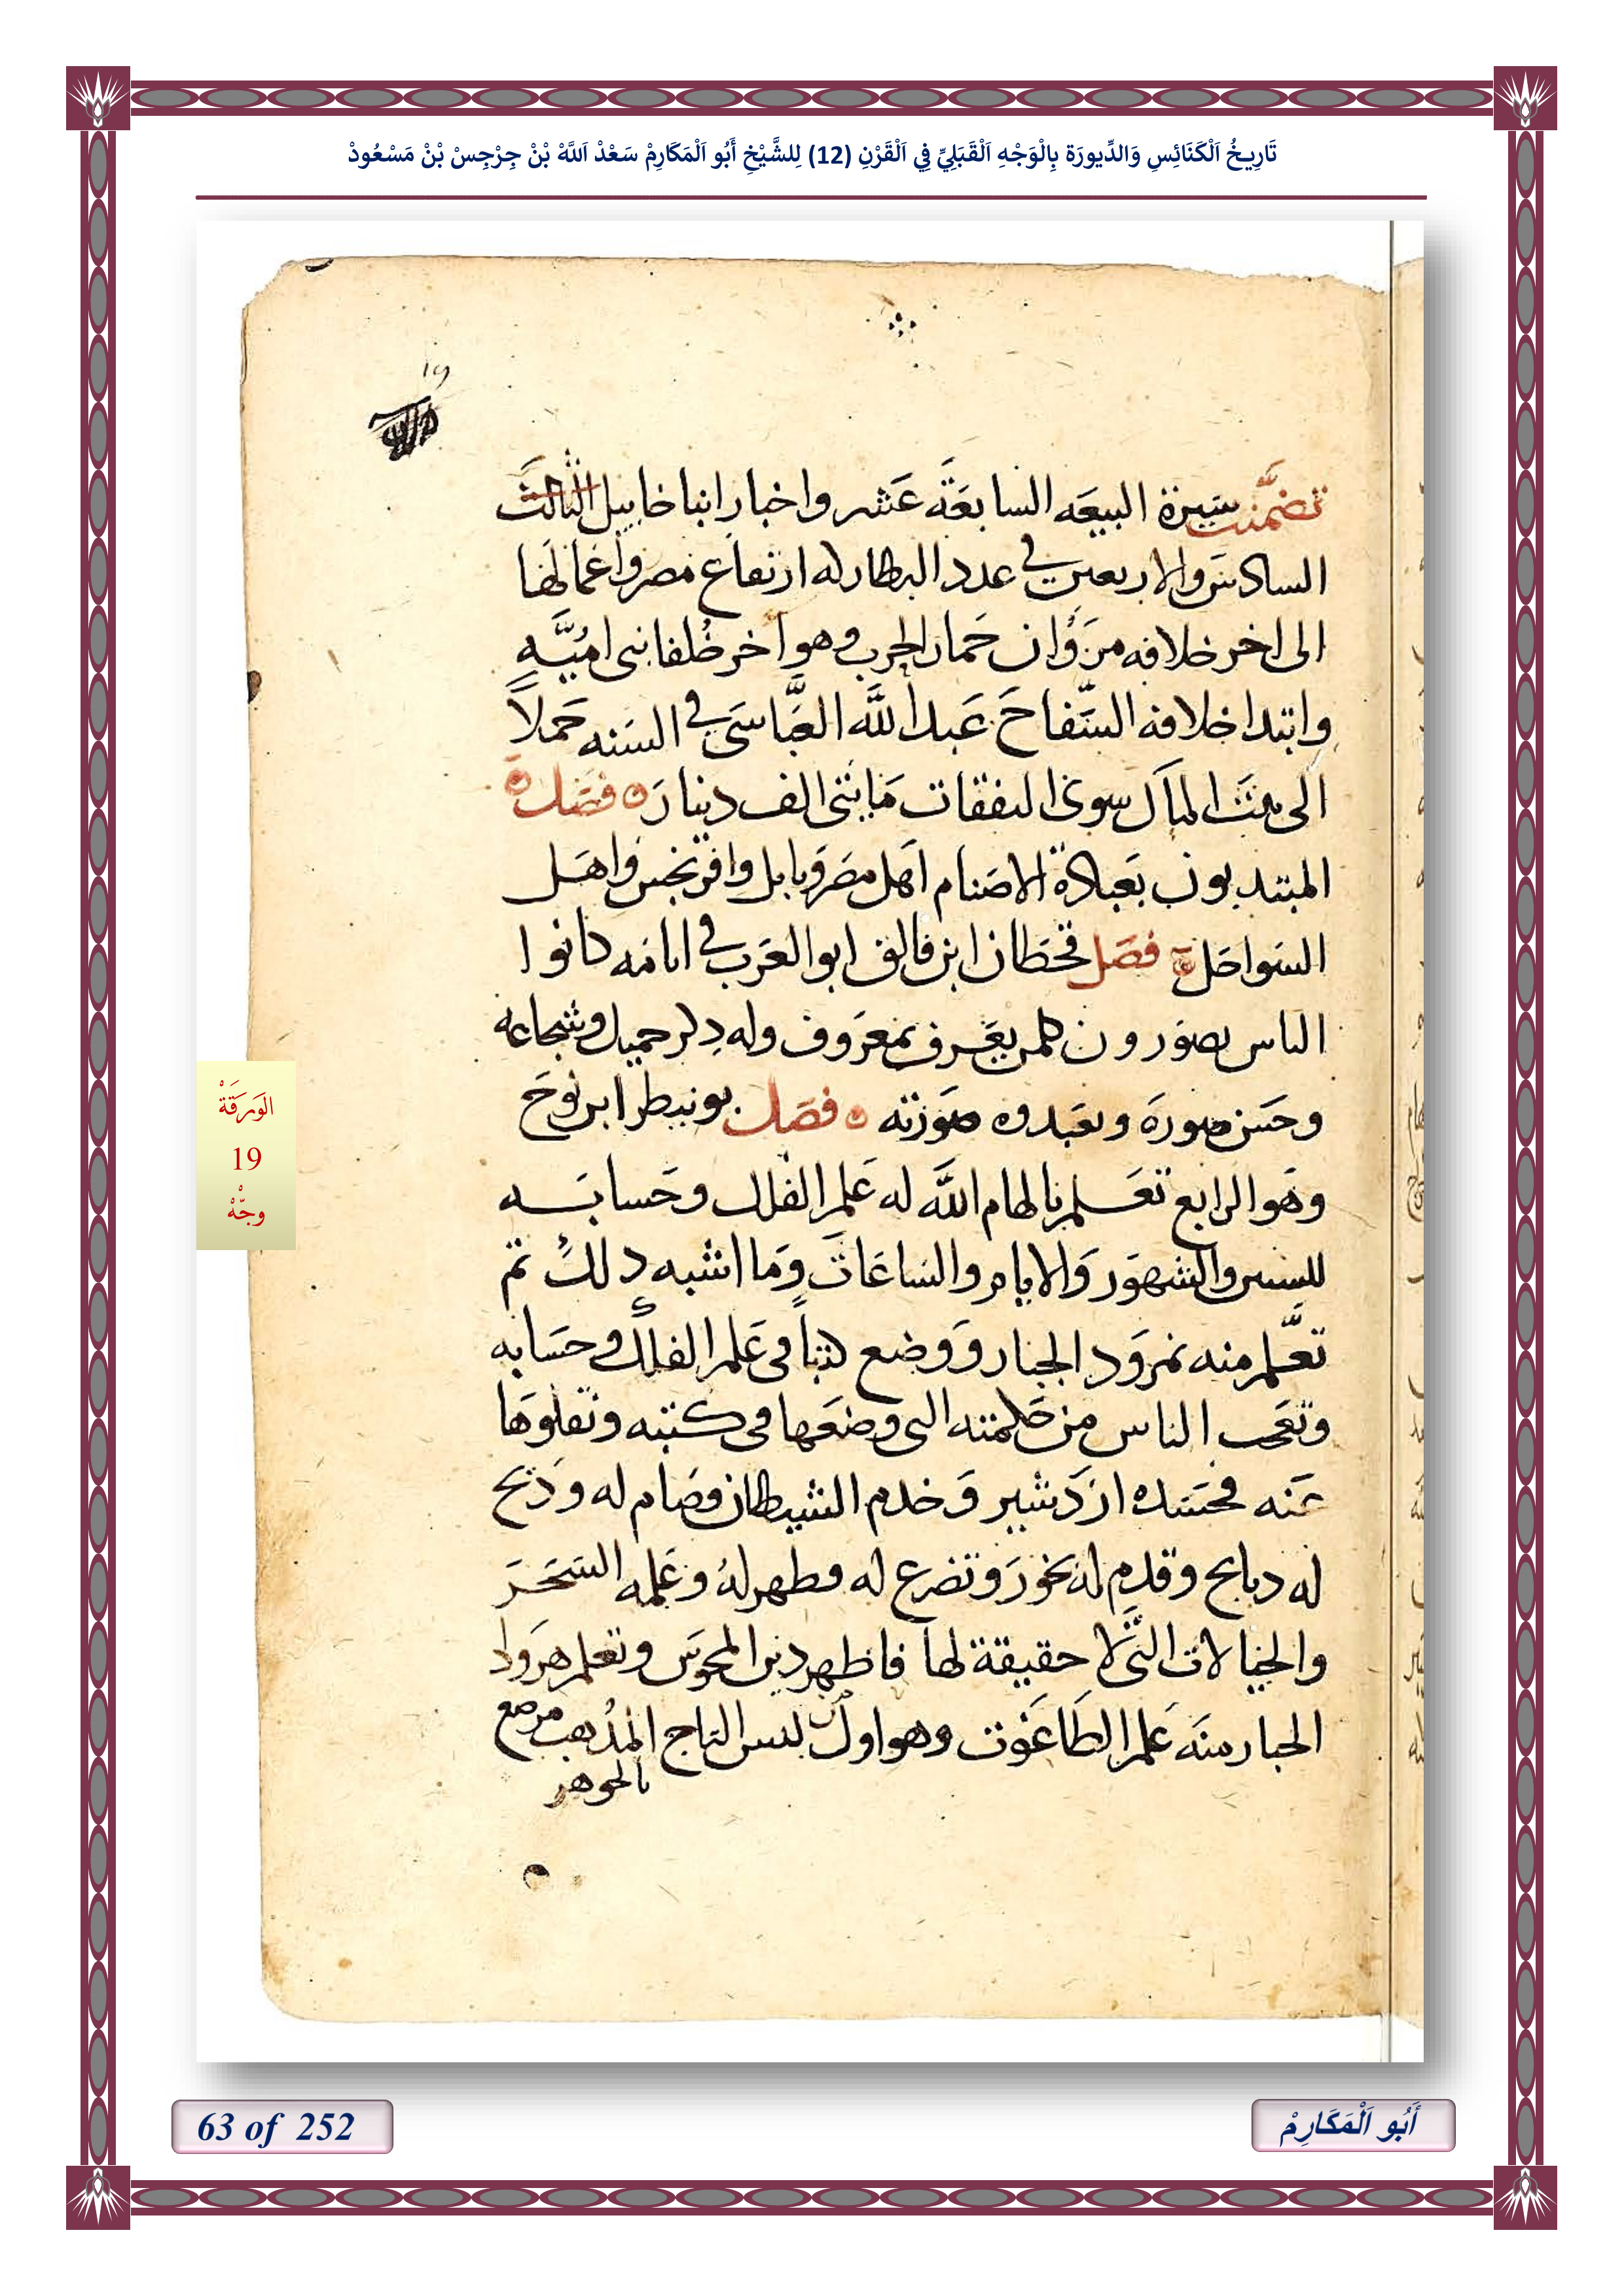 تَارِيخُ اَلْكَنَائِسِ وَالدِّيورَة بِالْوَجْهِ اَلْقَبَلِيِّ فِي اَلْقَرْنِ (12) لِلشَّيْخِ أَبُو اَلْمَكَارِمْ سَعْدْ اَللَّهْ بْنْ جِرْجِسْ بْنْ مَسْعُودْ
19
تضمَّنت سيرة البيعَه السابعَة عَشر واخبار انبا خاييل الثالث
السادس والاربعين في عدد البطاركه ارتفاع مصر واعمالها
الى اخر خلافه مروان حمار الحرب وهو اخر خُلفا بنى اميَّه
وابتدا خلافه السَّفاحَ عَبد اللَّه العبَّاسَي في السَنه حَملاً
الى بيت المال سوى النفقات مَايتى الف دينارَ فصَل
المبتديون بعَبادة الاصنام اهل مصر وبابل وافرنجس واهل
السَواحَل فصَل قحَطان ابن فالق ابو العَرب في ايامَه كانوا
الناس يصَورون كلمن يعَرف بمعَروف وله دكر جميل وشجاعه
وحَسَن صورة وتعبدوه صَورته فصَل بونيطر ابن نوحَ
وهَو الرابع تعَلم بالهام اللَّه له عَلم الفلك وحَسابَه
للسنين والشهوَر وَالايام والسَاعَات وَما اشبه دلك تم
تعَّلم منه نمروَد الجبار وَوضع كتباً في عَلم الفلك وحسَابه
وتعَجب الناس من حَكمته التي وضعَها في كتبه ونقلوَها
عَنه فحسَده ازدَشير وَخدم الشيطان وصَام له ودَبح
له دبايح وقدم له بخوَر وَتضرع له فظهر لهُ وعَلمه السَحَرَ
والخيالات التى لا حقيقة لها فاظهر دين المجوسَ وتعَلم هروَاد
الجبار منهَ عَلم الطَاغَوت وهو اول من لبس التاج المُدهب مرصع
بالجوهر
الوَرَقَةْ
19
وجّهْ
63 of 252
أَبُو اَلْمَكَارِمْ